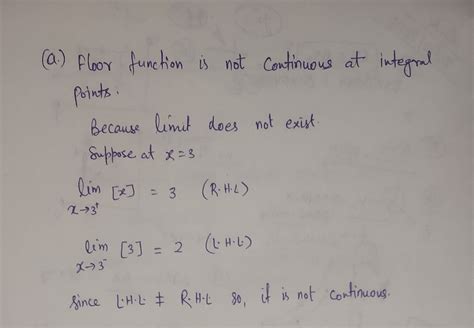 (a.) Floor function is not continuous at integral
points.
Because limit does not exist.
Suppose at x=3
lim [x] = 3 (R.H.L)
x→3⁺
lim [3] = 2 (L.H.L)
x→3⁻
Since L.H.L ≠ R.H.L so, it is not continuous.